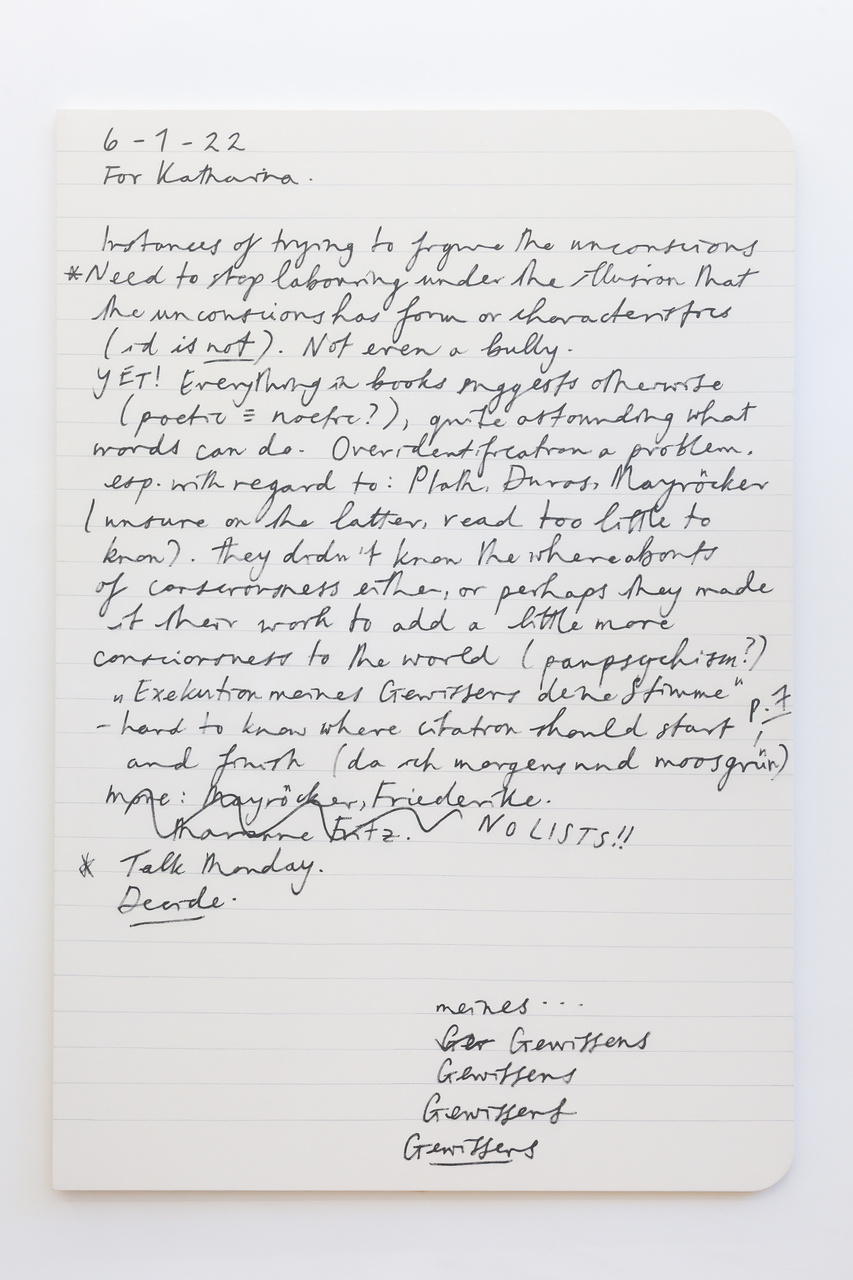 6 - 1 - 22
For Katharina.
Instances of trying to figure the unconscious
*Need to stop labouring under the illusion that
the unconscious has form or characteristics
(id is not). Not even a bully.
YET! Everything in books suggests otherwise
(poetic ≡ noetic?), quite astounding what
words can do. Overidentification a problem.
esp. with regard to: Plath, Duras, Mayröcker
(unsure on the latter, read too little to
know). They didn't know the whereabouts
of consciousness either, or perhaps they made
it their work to add a little more
consciousness to the world (panpsychism?)
„Exekution meines Gewissens deine Stimme“
p. 7
- hard to know where citation should start !
and finish (da ich morgens und moosgrün)
more: Mayröcker, Friederike.
Marianne Fritz. NO LISTS!!
* Talk Monday.
Decide.
meines ...
Ger Gewissens
Gewissens
Gewissens
Gewissens